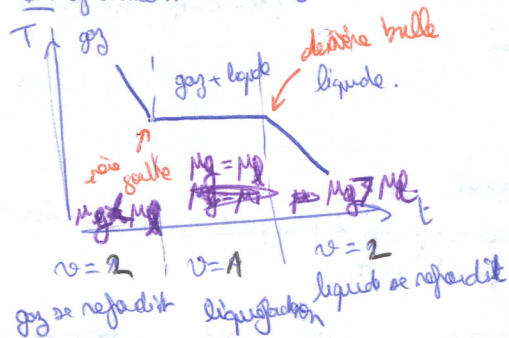 T
gaz
gaz + liquide
dernière bulle
liquide.
1ère goutte
μg < μl
μg = μl
μg > μl
t
v = 2
v = 1
v = 2
gaz se refroidit
liquéfaction
liquide se refroidit